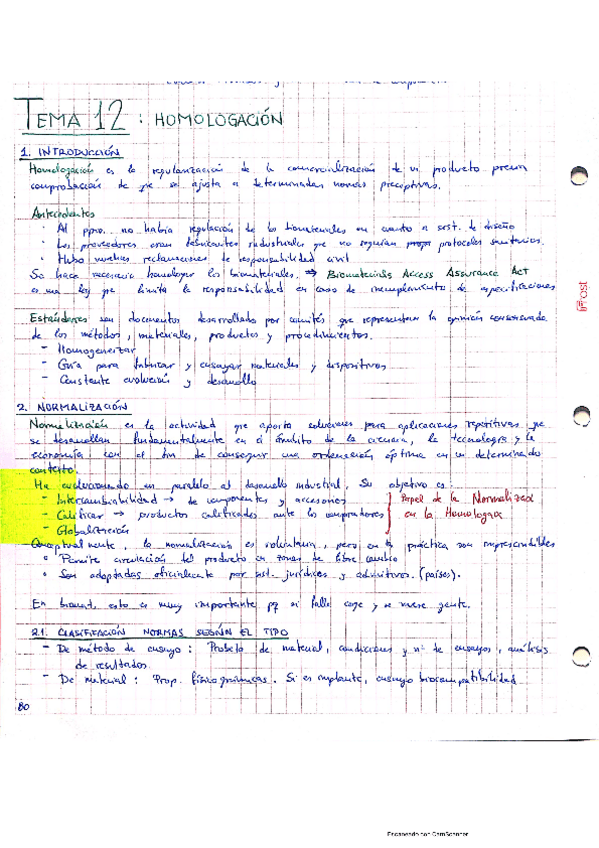 TEMA 12 : HOMOLOGACIÓN
1. INTRODUCCIÓN
Homologación es la regularización de la comercialización de un producto previa
comprobación de que se ajusta a determinadas normas preceptivas.
Antecedentes
· Al ppio. no había regulación de los biomateriales en cuanto a sist. de diseño
· Los proveedores eran fabricantes industriales que no seguían protocolos sanitarios.
· Hubo muchas reclamaciones de responsabilidad civil
Se hace necesario homologar los biomateriales. ⇒ Biomaterials Access Assurance Act
es una ley que limita la responsabilidad en caso de incumplimiento de especificaciones
Estándares son documentos desarrollado por comités que representan la opinión consensuada
de los métodos, materiales, productos y procedimientos.
- Homogeneizar
- Guía para fabricar y ensayar materiales y dispositivos
- Constante evolución y desarrollo
2. NORMALIZACIÓN
Normalización es la actividad que aporta soluciones para aplicaciones repetitivas que
se desarrollan fundamentalmente en el ámbito de la ciencia, la tecnología y la
economía con el fin de conseguir una ordenación óptima en un determinado
contexto.
Ha evolucionado en paralelo al desarrollo industrial. Su objetivo es
- Intercambiabilidad → de componentes y accesorios
- Calificar → productos calificados ante los compradores
- Globalización
Papel de la Normalizac
en la Homologac
Conceptualmente, la normalización es voluntaria, pero en la práctica son imprescindibles
· Permite circulación del producto en zonas de libre cambio
· Son adoptadas oficialmente por sist. jurídicos y admitivos. (países).
En biomat. esto es muy importante pq si falla coge y se muere gente.
2.1. CLASIFICACIÓN NORMAS SEGÚN EL TIPO
- De método de ensayo : Probeta de material, condiciones y nº de ensayos, análisis
de resultados.
- De material : Prop. fisicoquímicas. Si es implante, ensayo biocompatibilidad
80
Escaneado con CamScanner